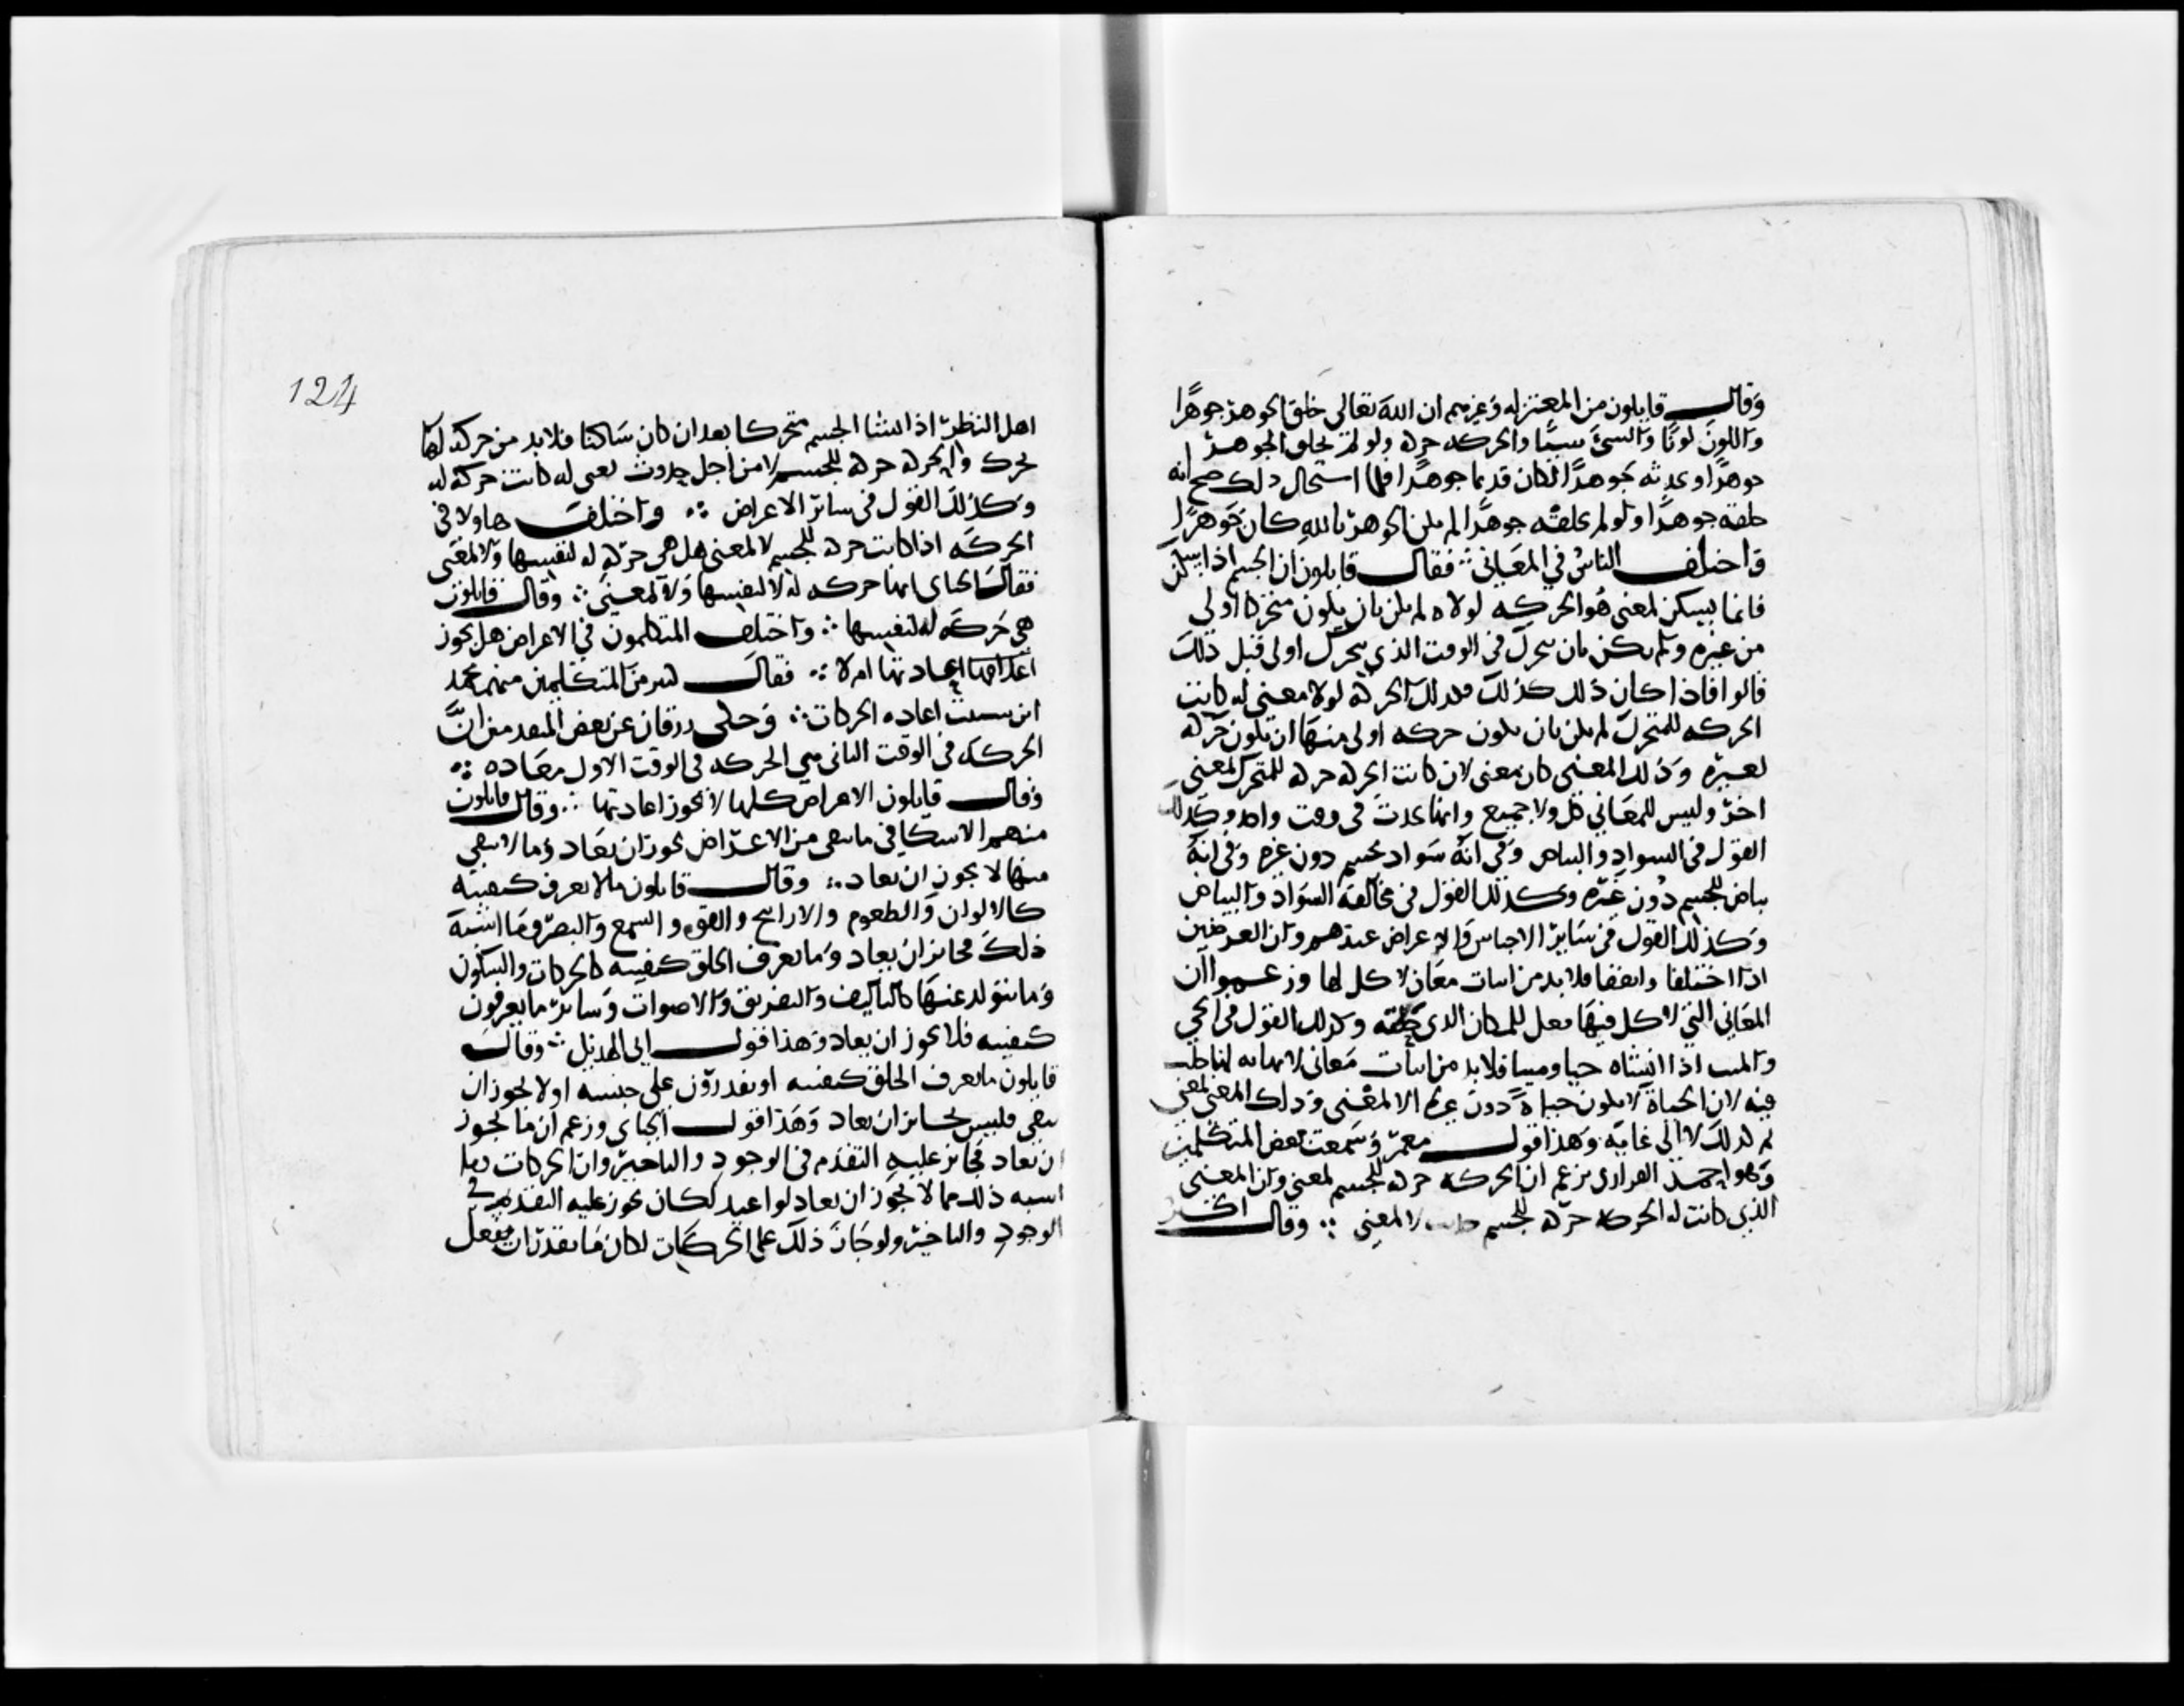 وقال قايلون من المعتزله وغيرهم ان الله تعالى خلق الجوهر جوهرا
واللون لونا والشئ شيئا والحركه حركه ولو لم يخلق الجوهر
جوهرا ويحدثه جوهرا لكان قديما جوهرا فلما استحال ذلك صح انه
خلقه جوهرا ولو لم يخلقه جوهرا لم يكن الجوهر بالله كان جوهرا
واختلف الناس في المعاني فقال قايلون ان الجسم اذا سكن
فانما يسكن لمعنى هو الحركه لولاه لم يكن بان يكون متحركا اولى
من غيره ولم يكن بان يتحرك في الوقت الذي يتحرك اولى قبل ذلك
قالوا فاذا كان ذلك كذلك فكذلك الحركة لولا معنى له كانت
الحركه للمتحرك لم يكن بان يكون حركه اولى منها ان تكون حركه
لغيره وذلك المعنى كان معنى لان كانت الحركه حركه للمتحرك لمعنى
اخر وليس للمعاني كل ولا جميع وانها تحدث في وقت واحد وكذلك
القول في السواد والبياض وفي انه سواد لجسم دون غيره وفي انه
بياض للجسم دون غيره وكذلك القول في مخالفة السواد والبياض
وكذلك القول في سائر الاجناس والاعراض عندهم وان العرضين
اذا اختلفا واتفقا فلا بد من اثبات معان لا كل لها وزعموا ان
المعاني التي لا كل فيها فعل للمكان الذي حلته وكذلك القول في الحي
والميت اذا اثبتناه حيا وميتا فلا بد من اثبات معاني لا نهايه لها حلت
فيه لان الحياة لا تكون حياة دون غيره الا لمعنى وذلك المعنى لمعنى
ثم كذلك لا الى غايه وهذا قول معمر وسمعت بعض المتكلمين
وهو احمد الفراتي يزعم ان الحركه حركه للجسم لمعنى وان المعنى
الذي كانت له الحركه حركه للجسم لا لمعنى وقال اكثر
124
اهل النظر اذا اثبتنا الجسم متحركا بعد ان كان ساكنا فلا بد من حركه لها
تحرك والحركه حركه للجسم لا من اجل حدوث معنى له كانت حركة له
وكذلك القول في سائر الاعراض واختلف هاولا في
الحركه اذا كانت حركه للجسم لا لمعنى هل هي حركه له لنفسها ولا لمعنى
فقال الجباي انها حركه له لا لنفسها ولا لمعنى وقال قائلون
هي حركه له لنفسها واختلف المتكلمون في الاعراض هل يجوز
اعادتها ام لا فقال كثير من المتكلمين منهم محمد
ابن شبيب اعاده الحركات وحكى زرقان عن بعض المتقدمين ان
الحركه في الوقت الثاني هي الحركه في الوقت الاول معاده
وقال قايلون الاعراض كلها لا يجوز اعادتها وقال قايلون
منهم الاسكافي ما يبقى من الاعراض يجوز ان يعاد وما لا يبقى
منها لا يجوز ان يعاد وقال قايلون ما لا نعرف كيفيته
كالالوان والطعوم والاراييح والقوه والسمع والبصر وما اشبه
ذلك فجائز ان يعاد وما يعرف الخلق كيفيته كالحركات والسكون
وما يتولد عنها كالتاليف والتفريق والاصوات وسائر ما يعرفون
كيفيته فلا يجوز ان يعاد وهذا قول ابي الهذيل وقال
قايلون ما يعرف الخلق كيفيته او يقدرون على جنسه او لا يجوز ان
يبقى فليس بجائز ان يعاد وهذا قول الجباي وزعم ان ما يجوز
ان يعاد فجائز عليه التقدم في الوجود والتاخير وان الحركات وما
اشبه ذلك مما لا يجوز ان يعاد لو اعيد لكان يجوز عليه التقدم في
الوجود والتاخير ولو جاز ذلك على الحركات لكان ما يقدر ان يفعل